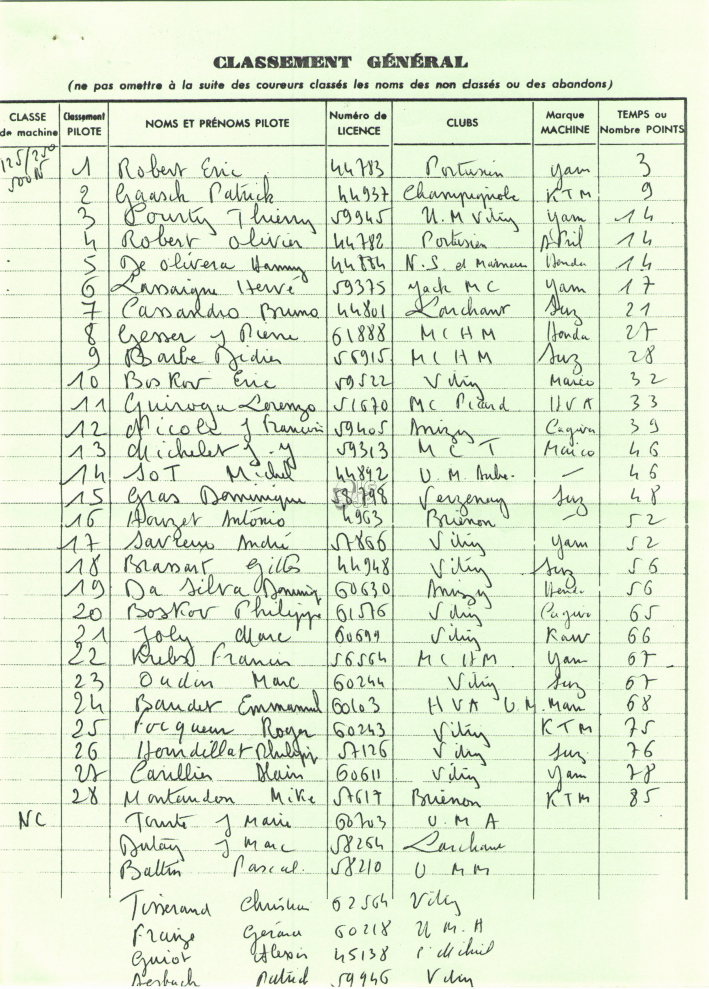 CLASSEMENT GÉNÉRAL
(ne pas omettre à la suite des coureurs classés les noms des non classés ou des abandons)
CLASSE de machine Classement PILOTE NOMS ET PRÉNOMS PILOTE Numéro de LICENCE CLUBS Marque MACHINE TEMPS ou Nombre POINTS
125/250
500 N
1 Robert Eric 44783 Portusien Yam 3
2 Gaasch Patrick 44937 Champignole KTM 9
3 Pourty Thierry 59945 U.M Vitry Yam 14
4 Robert Olivier 44782 Portusien April 14
5 De Olivera 44884 N.S. et Honda 14
6 Lassaigne Hervé 59375 Yack MC Yam 17
7 Cassandro Bruno 44801 Larchant Suz 21
8 Gesser J Pierre 61888 MCHM Honda 27
9 Barbe Didier 56915 MCHM Suz 28
10 Boskov Eric 59522 Vitry Maico 32
11 Guiroga Lorenzo 51670 MC Picard HVA 33
12 Nicole J Francois 59405 Anizy Cagiva 39
13 Michelet J.Y 59313 M C T Maico 46
14 JOT Michel 44892 U.M. Aube. — 46
15 Gras Dominique 58798 Verzenay Suz 48
16 Houzet Antonio 4963 Brienon — 52
17 André 57866 Vitry Yam 52
18 Brassart Gilles 44948 Vitry Suz 56
19 Da Silva 60630 Anizy Honda 56
20 Boskov Philippe 61576 Vitry Cagiva 65
21 Joly Marc 60699 Vitry Kaw 66
22 Krebs Francis 56564 MCHM Yam 67
23 Oudin Marc 60244 Vitry Suz 67
24 Baudet Emmanuel 60103 HVA U M. 68
25 Focqueur Roger 60243 Vitry KTM 75
26 Hourdillat Philipp 57126 Vitry Suz 76
27 Carillier Alain 60611 Vitry Yam 78
28 Montandon Mike 57617 Brienon KTM 85
NC J Marie 60703 U.M A
J Marc 58264 Larchant
Pascal. 58210 U MM
Tisserand Christian 62564 Vitry
Gérard 60218 U M.A
Guiot Alexis 45138
Patrick 59946 Vitry